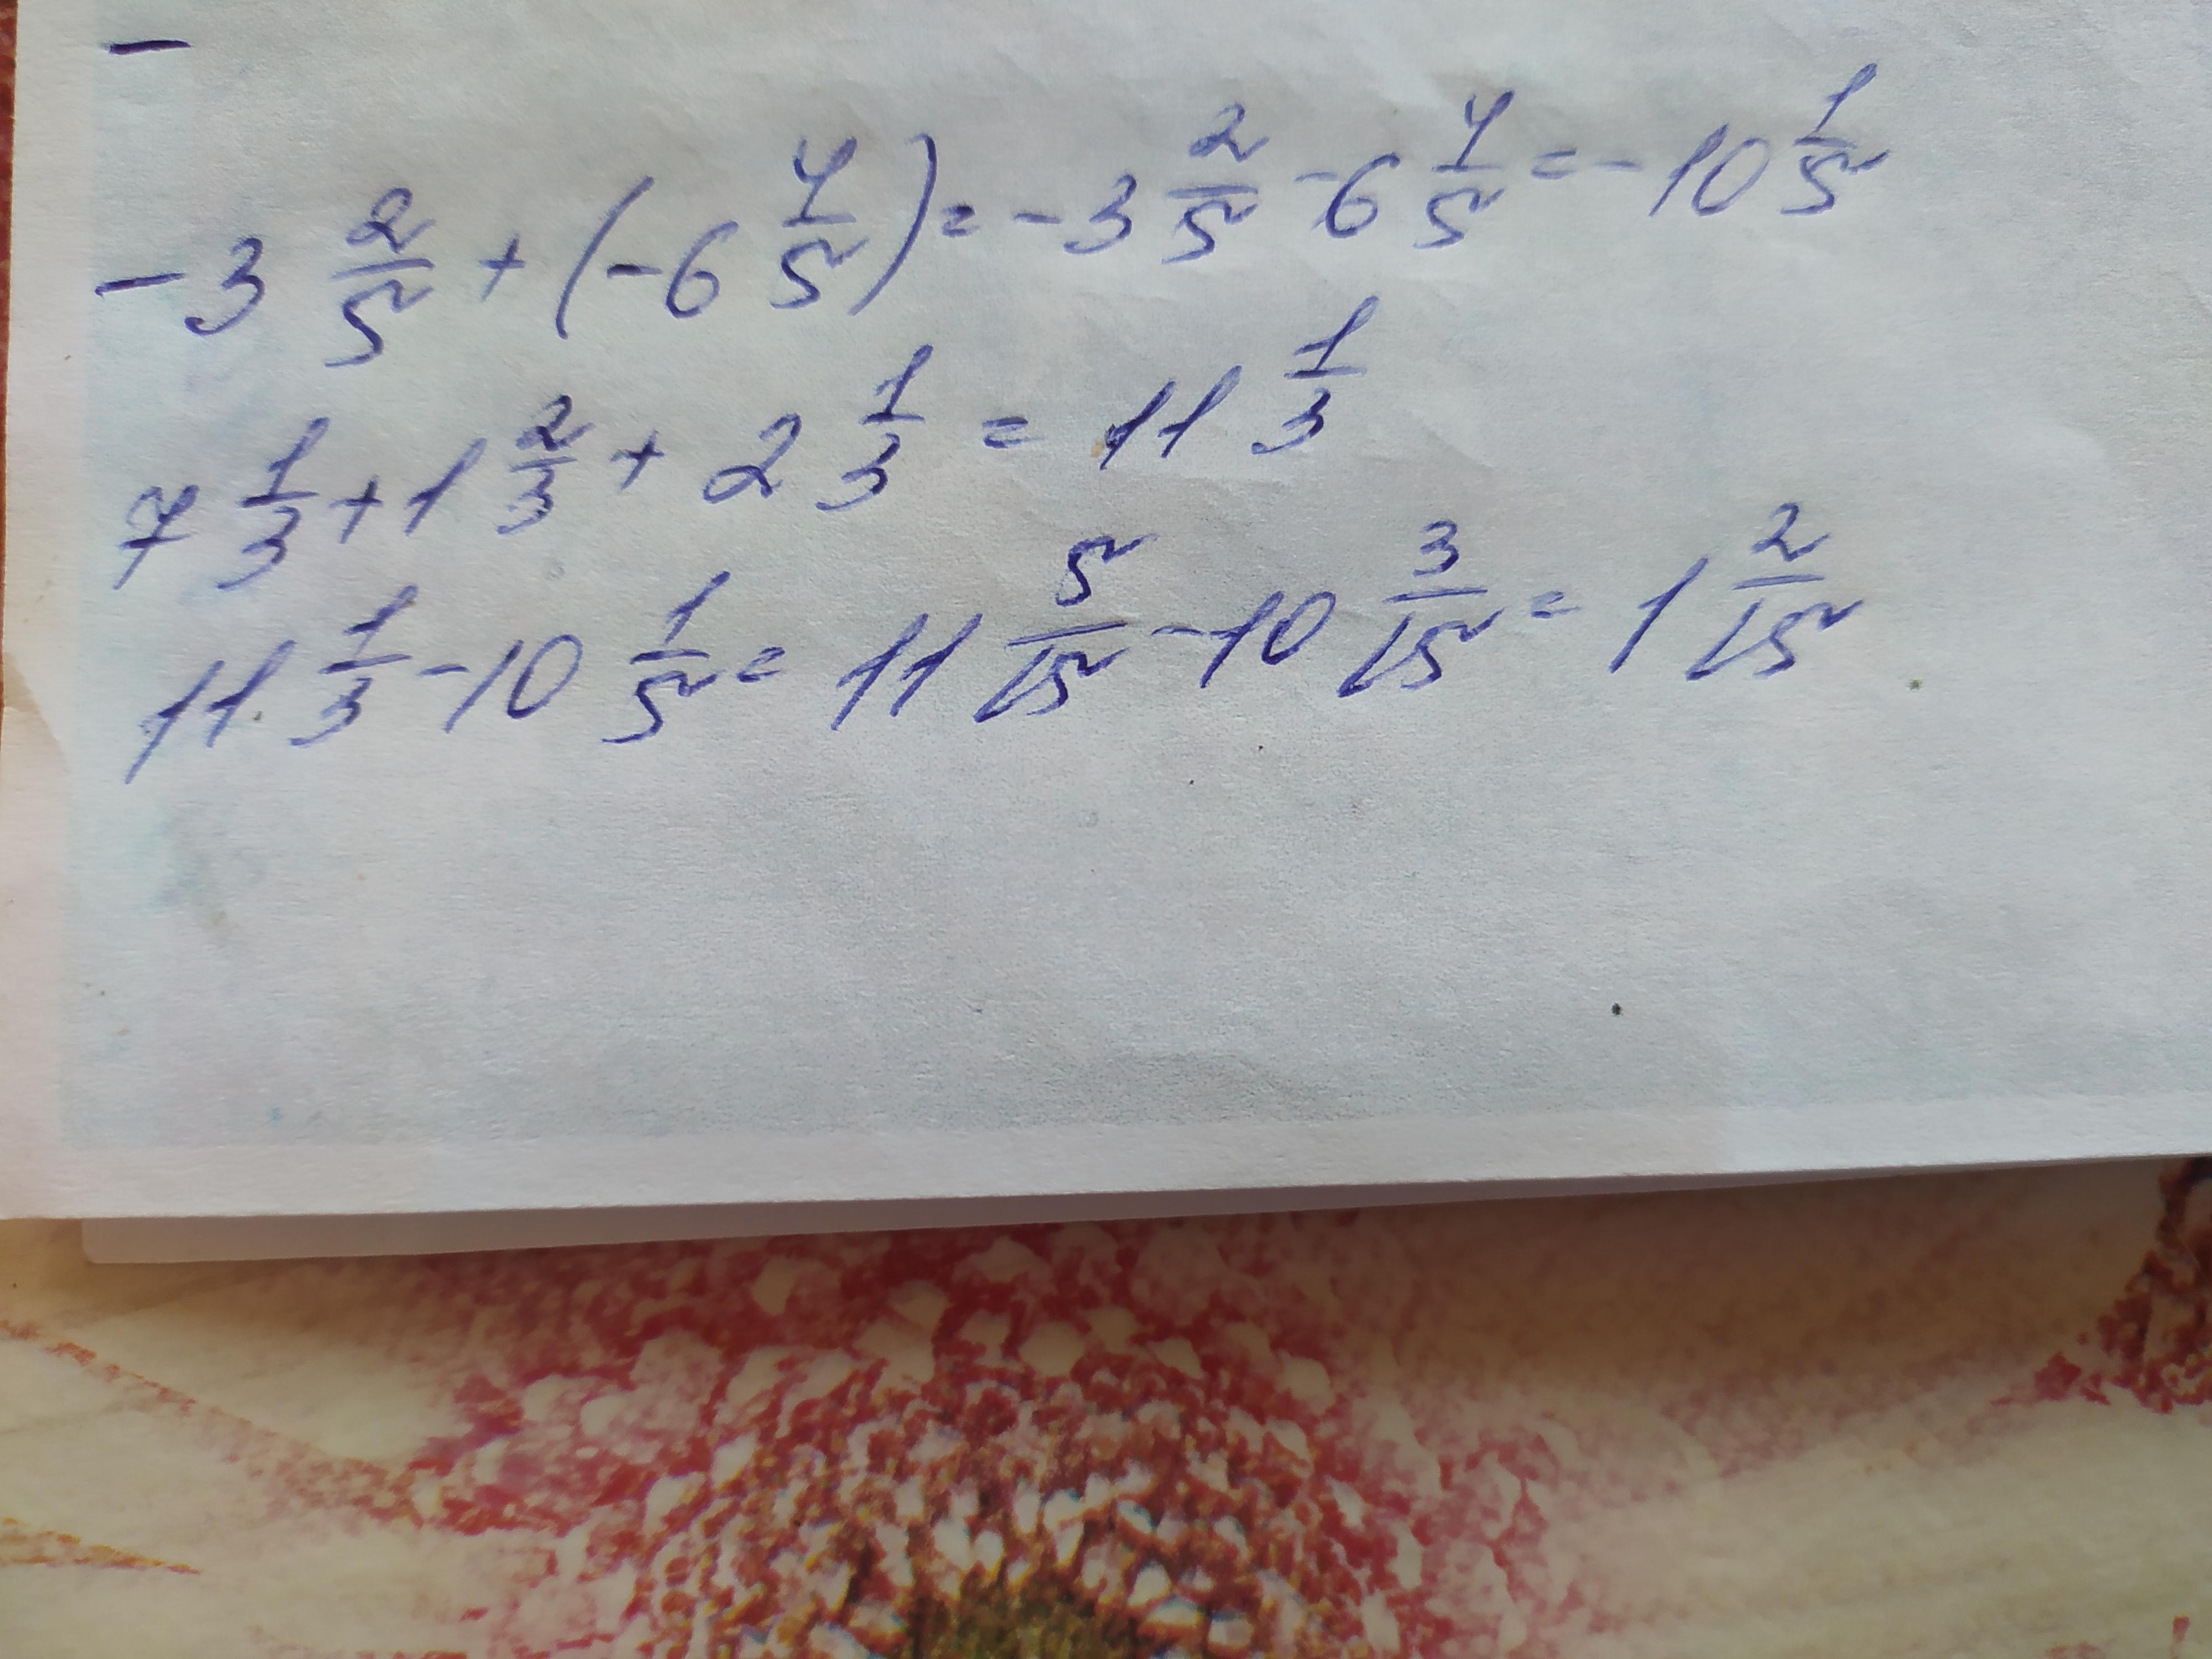 -
-3 2/5 + (-6 4/5) = -3 2/5 - 6 4/5 = -10 1/5
7 1/3 + 1 2/3 + 2 1/3 = 11 1/3
11 1/3 - 10 1/5 = 11 5/15 - 10 3/15 = 1 2/15